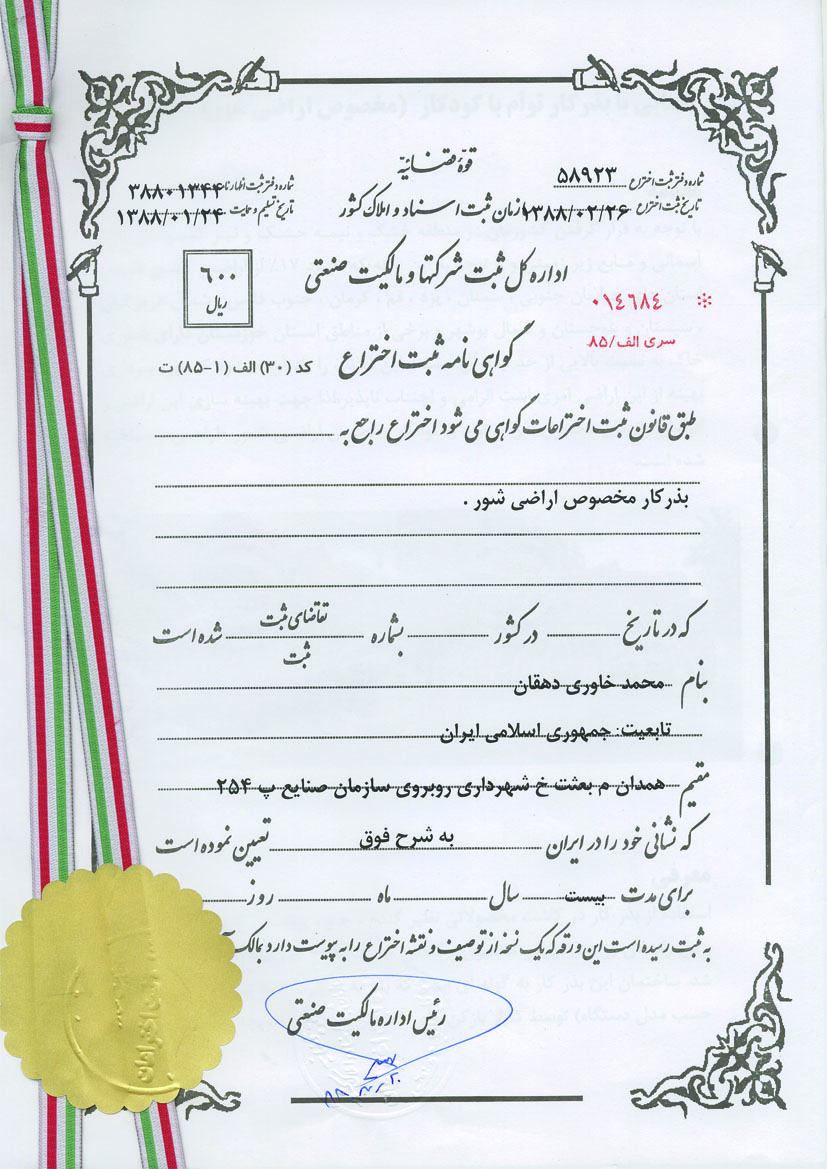 قوهٔ قضائیه
شماره دفتر ثبت اختراع ۵۸۹۲۳
شماره دفتر ثبت اظهارنا ۳۸۸۰۱۳۴۴
تاریخ ثبت اختراع ۱۳۸۸/۰۲/۲۶
زمان ثبت اسناد و املاک کشور
تاریخ تسلیم و حمایت ۱۳۸۸/۰۱/۲۴
اداره کل ثبت شرکتها و مالکیت صنعتی
۶۰۰
ریال
۰۱۴۶۸۴
سری الف/۸۵
گواهی نامه ثبت اختراع
کد (۳۰) الف (۱-۸۵) ت
طبق قانون ثبت اختراعات گواهی می شود اختراع راجع به
بذرکار مخصوص اراضی شور .
که در تاریخ در کشور بشماره تقاضای ثبت شده است
ثبت
بنام محمد خاوری دهقان
تابعیت: جمهوری اسلامی ایران
مقیم همدان م بعثت خ شهرداری روبروی سازمان صنایع پ ۲۵۴
که نشانی خود را در ایران به شرح فوق تعیین نموده است
برای مدت بیست سال ماه روز
به ثبت رسیده است این ورقه که یک نسخه از توصیف و نقشه اختراع را به پیوست دارد بمالک
رئیس اداره مالکیت صنعتی